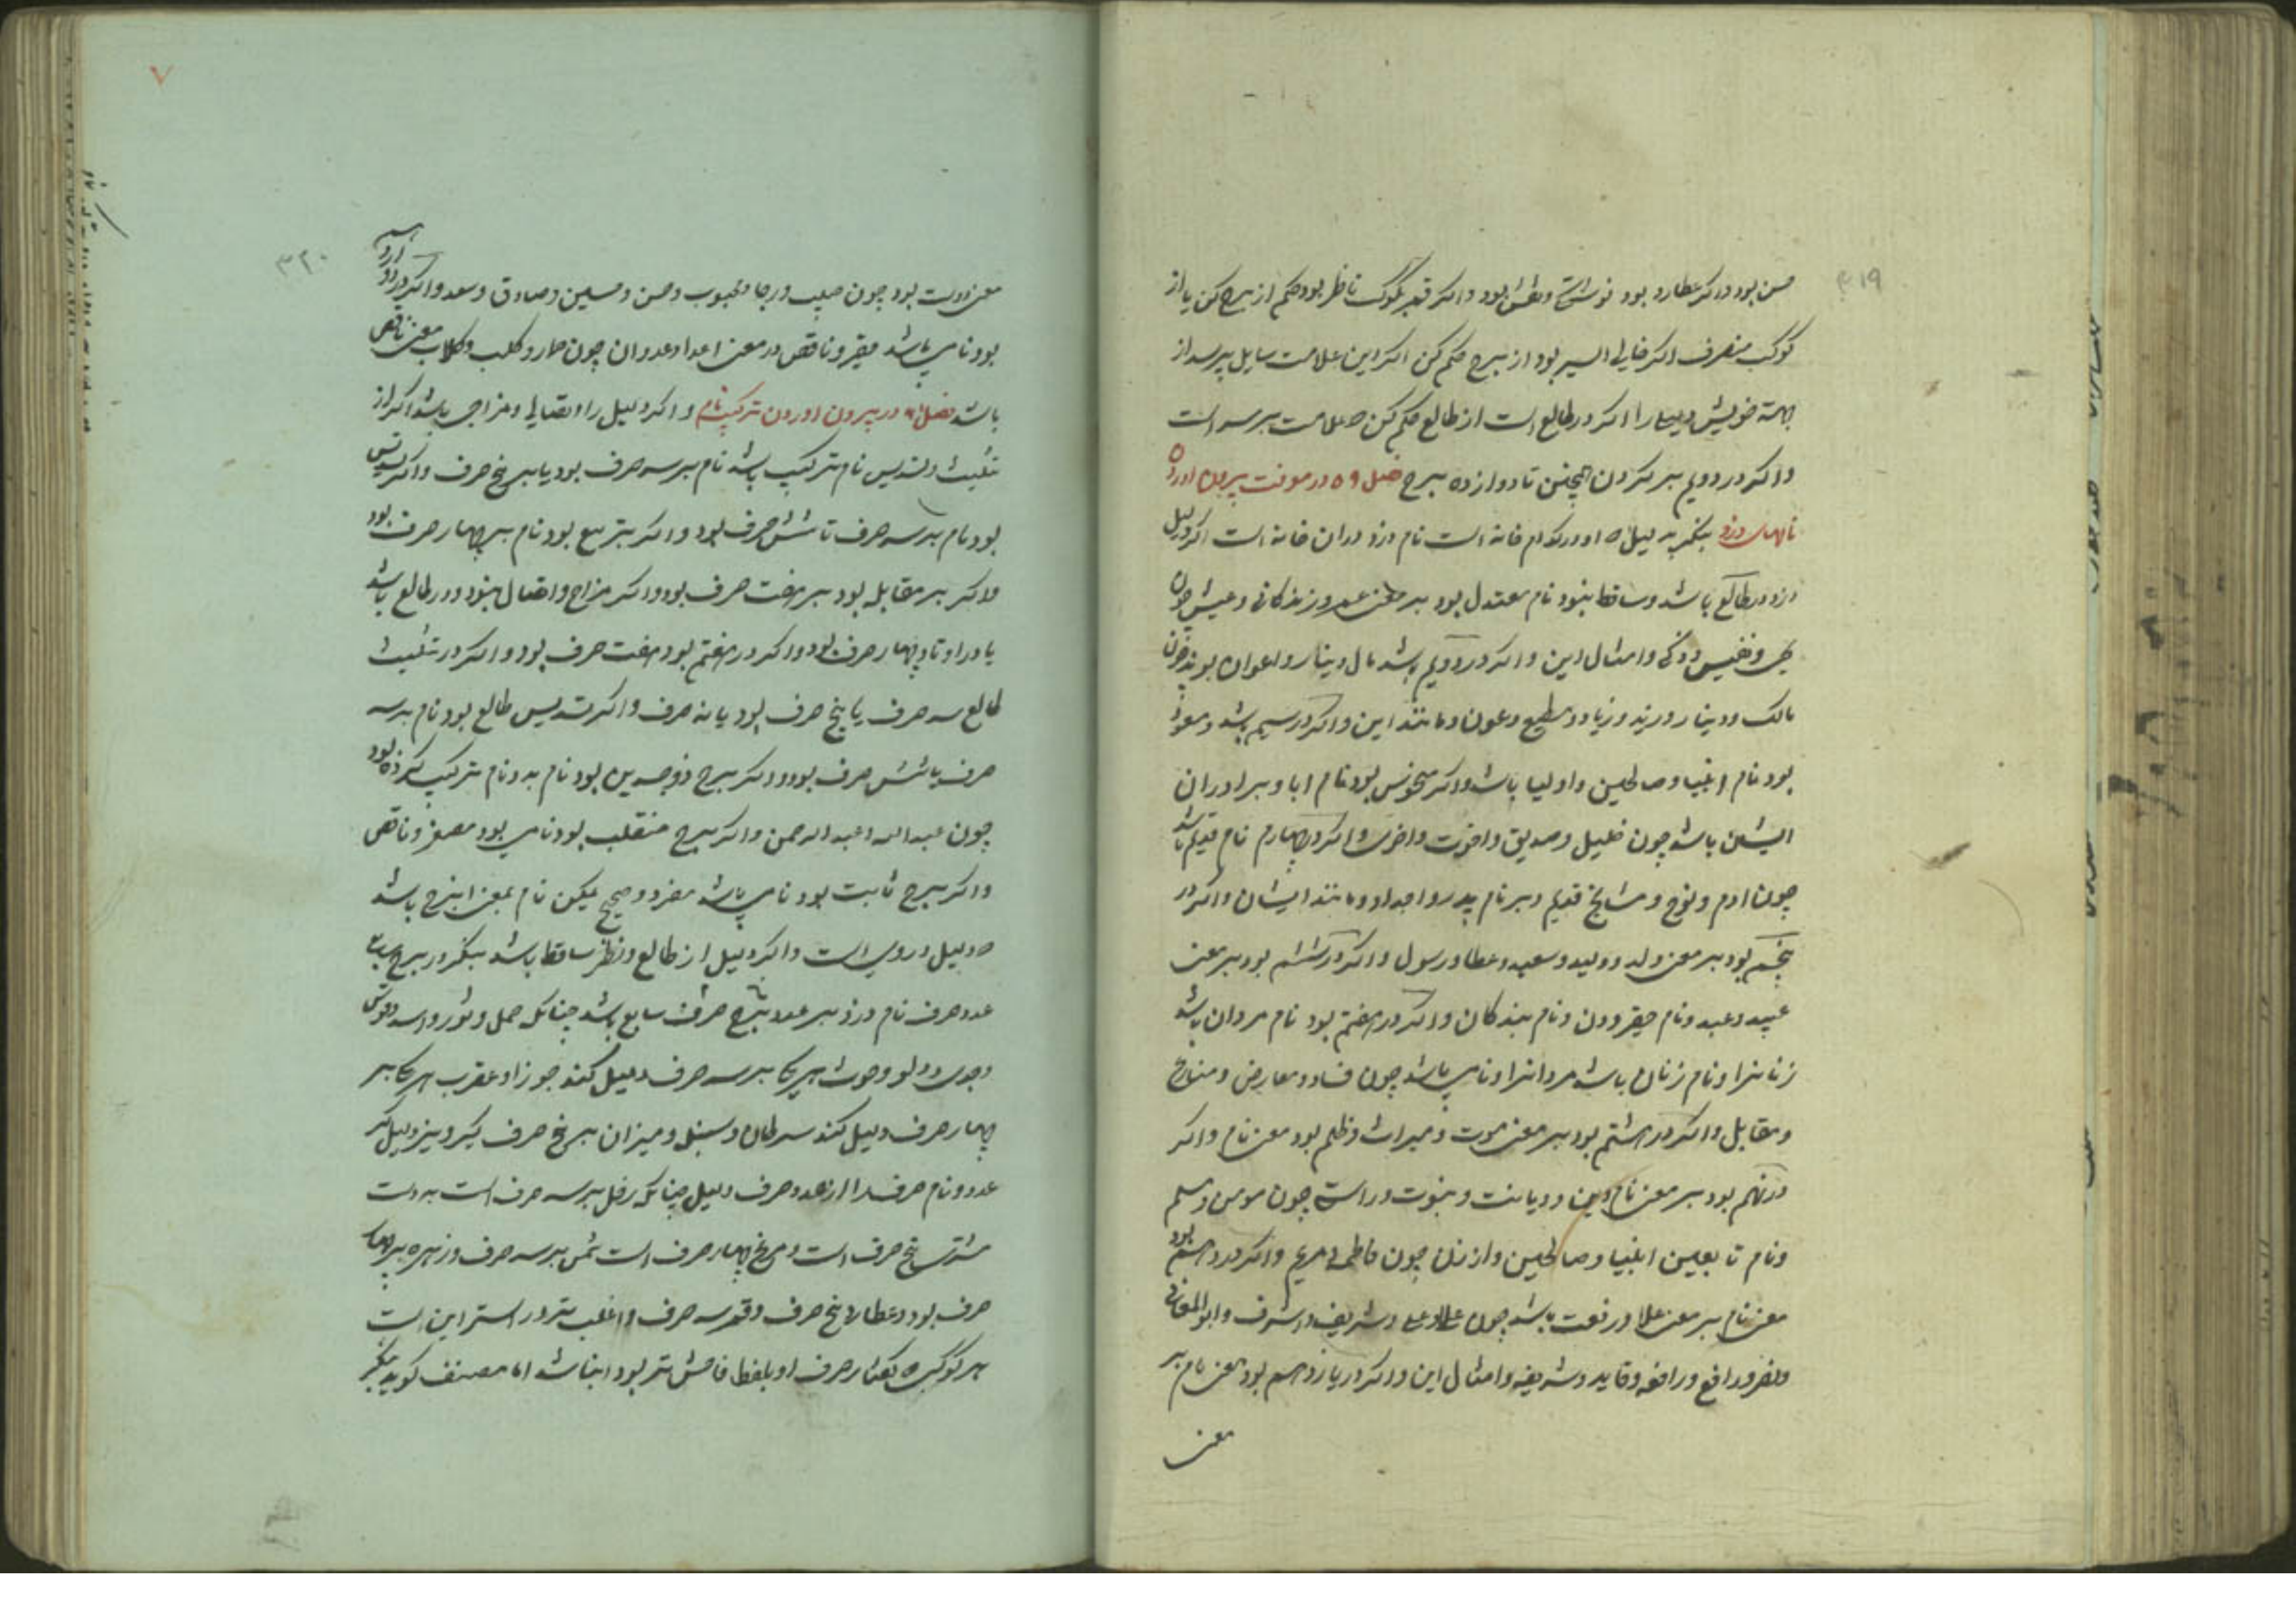 ۳۱۹
حسن بود و اکر عطارد بود نوشتهٔ و نقش بود و اکر قمر بکوکب ناظر بود حکم از برج کن یا از
کوکب منصرف اکر خالی السیر بود از برج حکم کن اکر این علامت سایل پرسد از
جهة خویش دلیل را اکر در طالع است از طالع حکم کن علامت بر سر است
و اکر در دویم بر کردن همچنین تا دوازده برج فصل ۵۹ در معرفت بیرون اوردن
نامهای دزد بنکر به دلیل او در کدام خانه است نام دزد در ان خانه است اکر دلیل
دزد در طالع باشد و ساقط نبود نام معتدل بود بر معنی عمر و زندکانی و عیش چون
و نفیس و زکی و امثال این و اکر در دویم باشد مال و دینار و اعوان بود چون
مالک و دینار و زید و زیاد و مطیع و عون و مانند این و اکر در سیم باشد و مسعود
بود نام انبیا و صالحین و اولیا باشد و اکر منحوس بود نام ابا و برادران
ایشان باشد چون خلیل و صدیق و اخوت و اخوی و اکر در چهارم نام قدیم باشد
چون ادم و نوح و مشایخ قدیم و بر نام پدر و اجداد و مانند ایشان و اکر در
پنجم بود بر معنی ولد و ولید و سعید و عطا و رسول و اکر در ششم بود بر معنی
عبید و عبد و نام حقیر و دون و نام بندکان و اکر در هفتم بود نام مردان باشد
زنانرا و نام زنان باشد مردانرا و نامی باشد چون فساد و معارض و منازع
و مقابل و اکر در هشتم بود بر معنی موت و میراث و ظلم بود معنی نام و اکر
در نهم بود بر معنی نام دین و دیانت و نبوت و راستی چون مومن و مسلم
و نام تابعین انبیا و صالحین و از زنان چون فاطمه و مریم و اکر در دهم بود
معنی نام بر معنی علا و رفعت باشد چون علا و علی و شریف و اشرف و ابو المعالی
و نصر و رافع و رافعه و قاید و شریفه و امثال این و اکر در یازدهم بود معنی نام بر
معنی
۷
۳۲۰
معنی دوست بود چون حبیب و رجا و محبوب و حسن و حسین و صادق و سعد و اکر در دوازدهم
بود نامی باشد حقیر و ناقص در معنی اعدا و عدوان چون حمار و کلب و کلاب معنی ناقص
باشد فصل ۶۰ در بیرون اوردن ترکیب نام و اکر دلیل را اتصالی و مزاجی باشد اکر از
تثلیث و تسدیس نام ترکیب باشد نام بر سه حرف بود یا بر پنج حرف و اکر تسدیس
بود نام بر سه حرف تا شش حرف بود و اکر بتربیع بود نام بر چهار حرف بود
و اکر بر مقابله بود بر هفت حرف بود و اکر مزاج و اتصال نبود و در طالع باشد
یا در اوتاد چهار حرف بود و اکر در هفتم بود هفت حرف بود و اکر در تثلیث
طالع سه حرف یا پنج حرف بود یا نه حرف و اکر تسدیس طالع بود نام بر سه
حرف یا شش حرف بود و اکر برج ذوجسدین بود نام بدو نام ترکیب کرده بود
چون عبدالله و عبدالرحمن و اکر برج منقلب بود نامی بود مصغر و ناقص
و اکر برج ثابت بود نامی باشد مفرد و صحیح لیکن نام بمعنی ان برج باشد
که دلیل در وی است و اکر دلیل از طالع و نظر ساقط باشد بنکر در برج سابع
عدد حرف نام دزد بر عدد برج حرف سابع باشد چنانکه حمل و ثور و اسد و قوس
و جدی و دلو و حوت هر یکی بر سه حرف دلیل کنند جوزا و عقرب هر یکی بر
چهار حرف دلیل کنند سرطان و سنبله و میزان بر پنج حرف دیکر و نیز دلیل کند
عدد و نام حرف را از عدد حرف دلیل چنانکه زحل بر سه حرف است به دست
مشتری پنج حرف است و مریخ چهار حرف است شمس بر سه حرف و زهره بر چهار
حرف بود و عطارد پنج حرف و قمر سه حرف و اغلب تر و راستر این است
هر کوکب که بکفتار حرف او بلفظ فاحش تر بود انباشد اما مصنف کوید بنکر